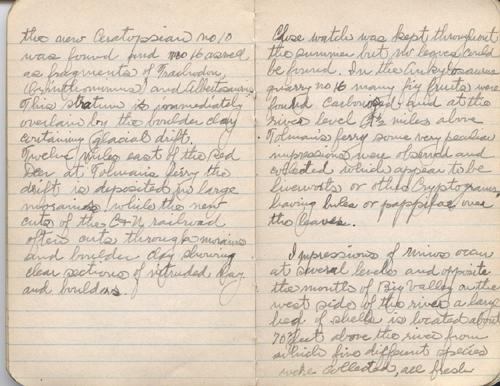 the new Ceratopsian no 10
was found and no 16 as well
as fragments of Trachodon,
(Ornithomimus) and Albertosaurus.
This stratum is immediately
overlain by the boulder clay
containing glacial drift.
Twelve miles east of the Red
Deer at Tolmans ferry the
drift is deposited in large
moraines. while the new
cuts of the C+N. railroad
often cuts through moraines
and boulder clay showing
clear sections of intruded clay
and boulders.
Close watch was kept throughout
the summer but no leaves could
be found. In the Ankylosaurus
quarry no 16 many fig fruits were
found carbonized. and at the
river level miles above
Tolmans ferry some very peculiar
impressions were observed and
collected which appear to be
liverworts or other Cryptograms,
having bulbs or over
the leaves.
Impressions of unios occur
at several levels and opposite
the mouth of Big Valley on the
west side of the river a large
bed of shells is located about
70 feet above the river from
which five different species
were collected, all fresh